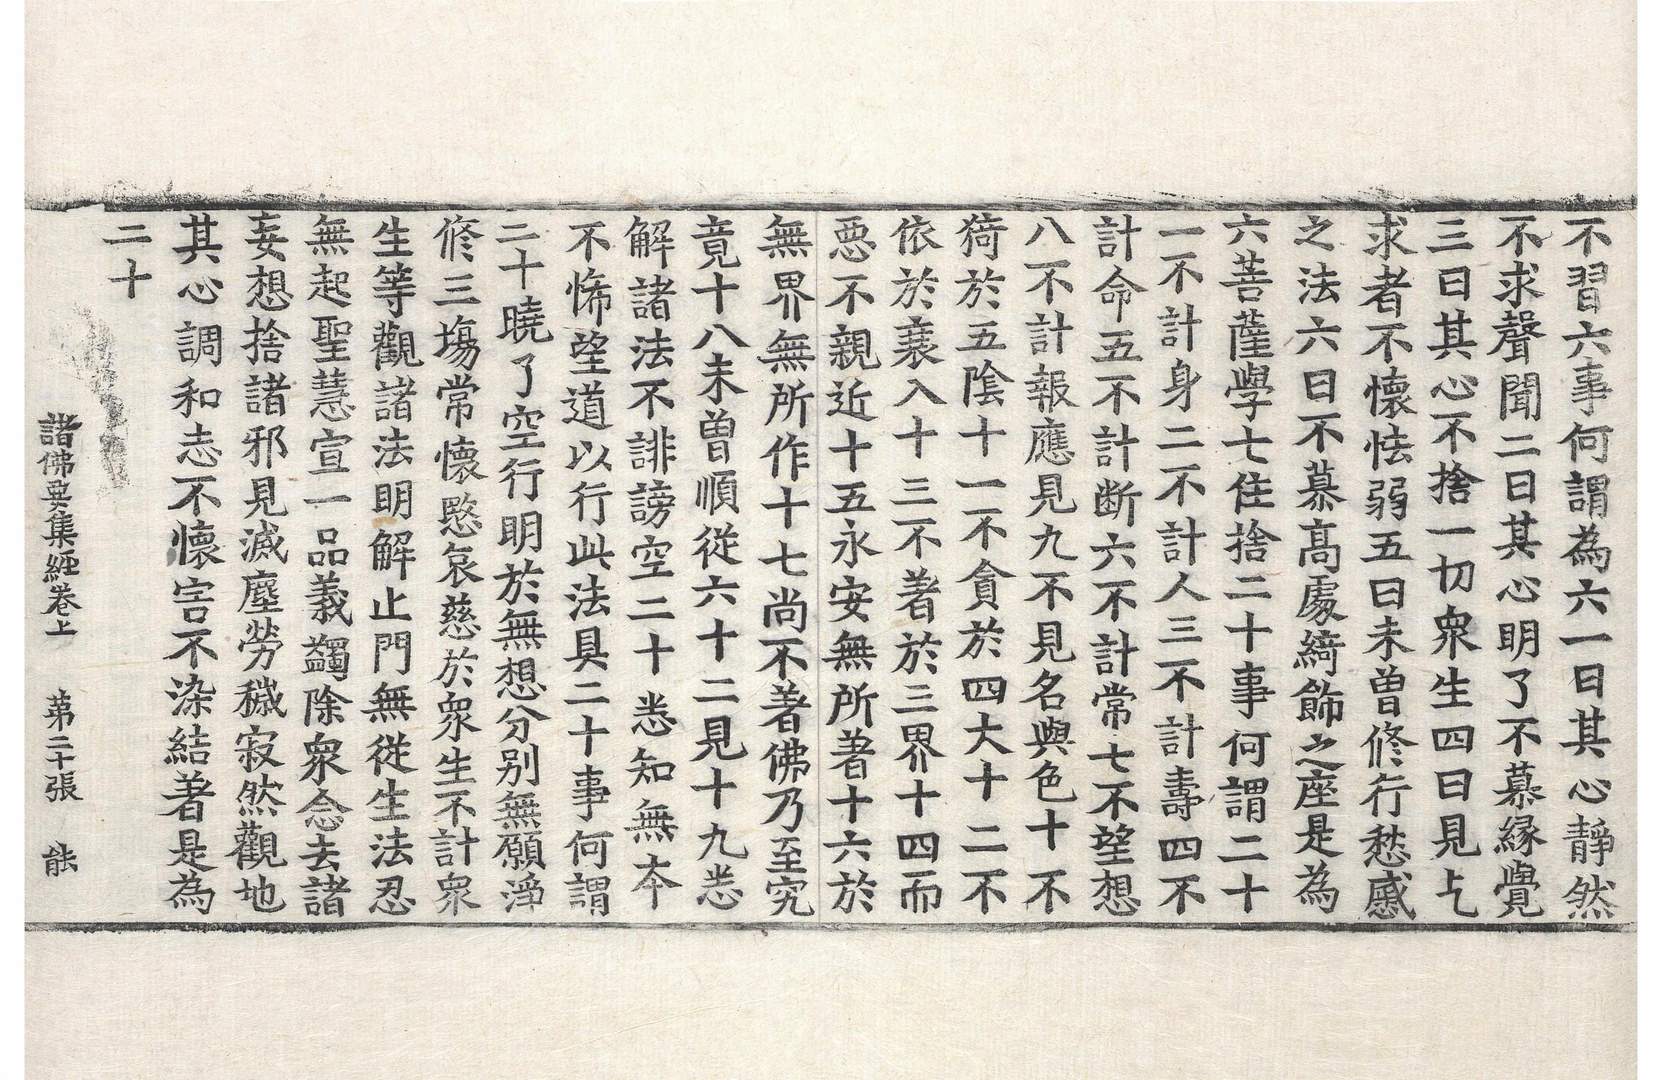 不習六事何謂為六一曰其心靜然
不求聲聞二曰其心明了不慕緣覺
三曰其心不捨一切衆生四曰見乞
求者不懷怯弱五曰未曽修行愁慼
之法六曰不慕髙處綺飾之座是為
六菩薩學七住捨二十事何謂二十
一不計身二不計人三不計壽四不
計命五不計断六不計常七不望想
八不計報應見九不見名與色十不
猗於五陰十一不貪於四大十二不
依於衰入十三不著於三界十四而
惡不親近十五永安無所著十六於
無界無所作十七尚不著佛乃至究
竟十八未曽順從六十二見十九悉
解諸法不誹謗空二十悉知無本
不悕望道以行此法具二十事何謂
二十曉了空行明於無想分别無願淨
修三塲常懷愍哀慈於衆生不計衆
生等觀諸法明解止門無從生法忍
無起聖慧宣一品義蠲除衆念去諸
妄想捨諸邪見滅塵勞穢寂然觀地
其心調和志不懷害不染結著是為
二十
諸佛要集經卷上 第二十張 能